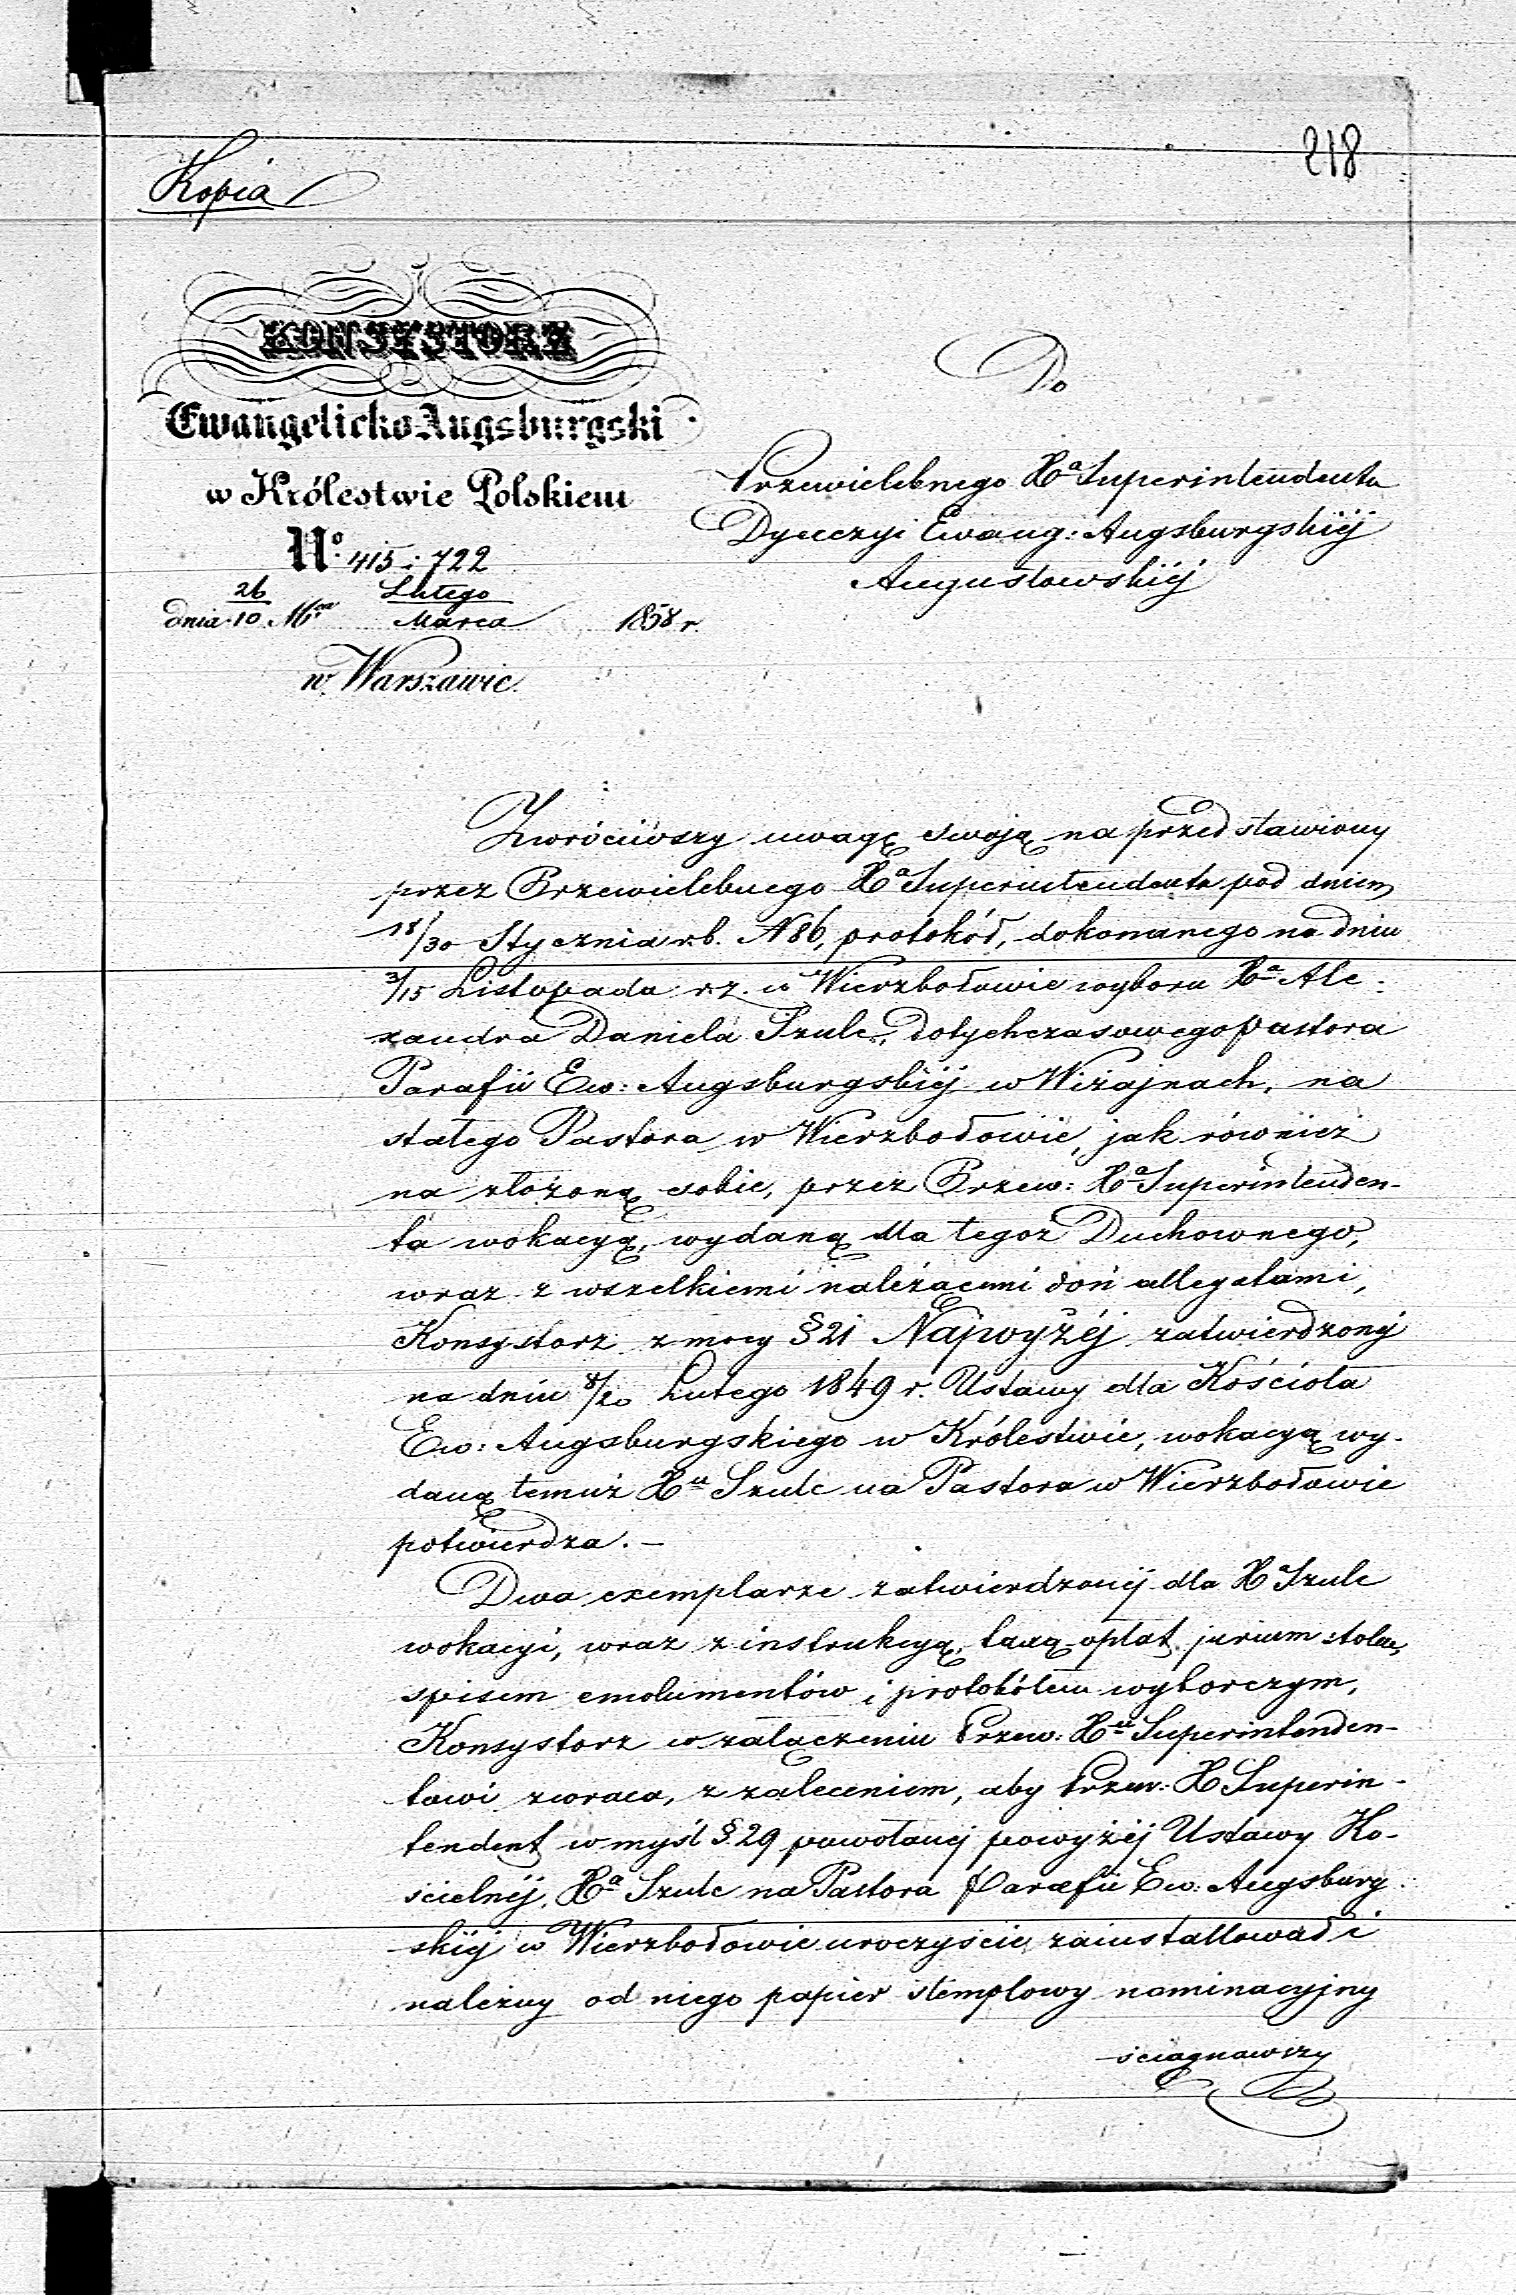 218
Kopia
KONSYSTORZ
Ewangelicko Augsburgski
w Królestwie Polskiem
No. 415 : 722
dnia 26/10 Mca Lutego/Marca 1858 r.
w Warszawie.
Do
Przewielebnego Xa Superintendenta
Dyeczyi Ewang: Augsburgskiéj
Augustowskiéj
Zwróciwszy uwagę swoją na przedstawiony
przez Przewielebnego Xa Superintendenta pod dniem
18/30 Stycznia r.b. N 86, protokół, dokonanego na dniu
3/15 Listopada r.z. w Wierzbołowie wyboru Xa Ale-
xandra Daniela Szulc, dotychczasowego pastora
Parafii Ew: Augsburgskiéj w Wiżajnach, na
stałego Pastora w Wierzbołowie, jak również
na złożoną sobie, przez Przew: Xa Superintenden-
ta wokacyą, wydaną dla tegoż Duchownego,
wraz z wszelkiemi należącemi doń allegatami,
Konsystorz z mocy § 21 Najwyżéj zatwierdzonéj
na dniu 8/20 Lutego 1849 r. Ustawy dla Kościoła
Ew: Augsburgskiego w Królestwie, wokacyą wy-
daną temuż Xu Szulc na Pastora w Wierzbołowie
potwierdza. —
Dwa exemplarze zatwierdzonéj dla Xa Szulc
wokacyi, wraz z instrukcyą, taxą opłat jurium stolae,
spisem emolumentów i protokółem wyborczym,
Konsystorz w załączeniu Przew: Xu Superintenden-
towi zwraca, z zaleceniem, aby Przew: X Superin-
tendent w myśl § 29 powołanej powyżéj Ustawy Ko-
ścielnéj, Xa Szulc na Pastora Parafii Ew: Augsburg-
skiéj w Wierzbołowie uroczyście zainstallował i
należny od niego papier stemplowy nominacyjny
ściągnawszy